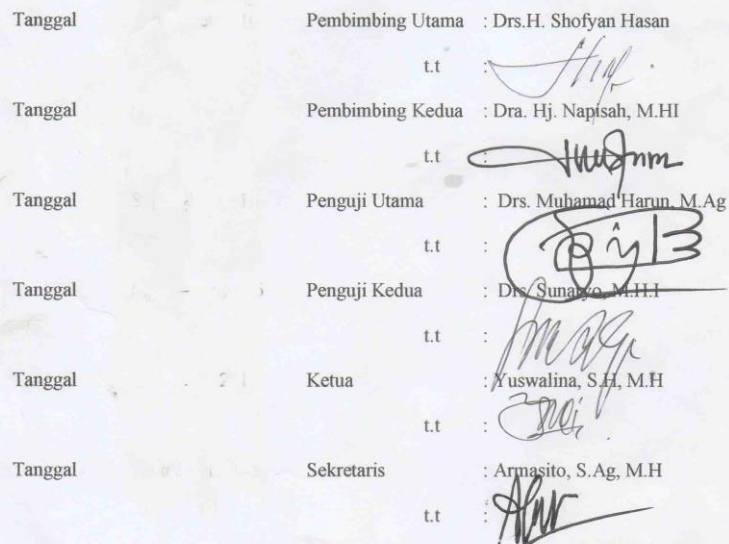 Tanggal Pembimbing Utama : Drs.H. Shofyan Hasan
t.t :
Tanggal Pembimbing Kedua : Dra. Hj. Napisah, M.HI
t.t :
Tanggal Penguji Utama : Drs. Muhamad Harun, M.Ag
t.t :
Tanggal Penguji Kedua : Drs. Sunaryo, M.H.I
t.t :
Tanggal Ketua : Yuswalina, S.H, M.H
t.t :
Tanggal Sekretaris : Armasito, S.Ag, M.H
t.t :